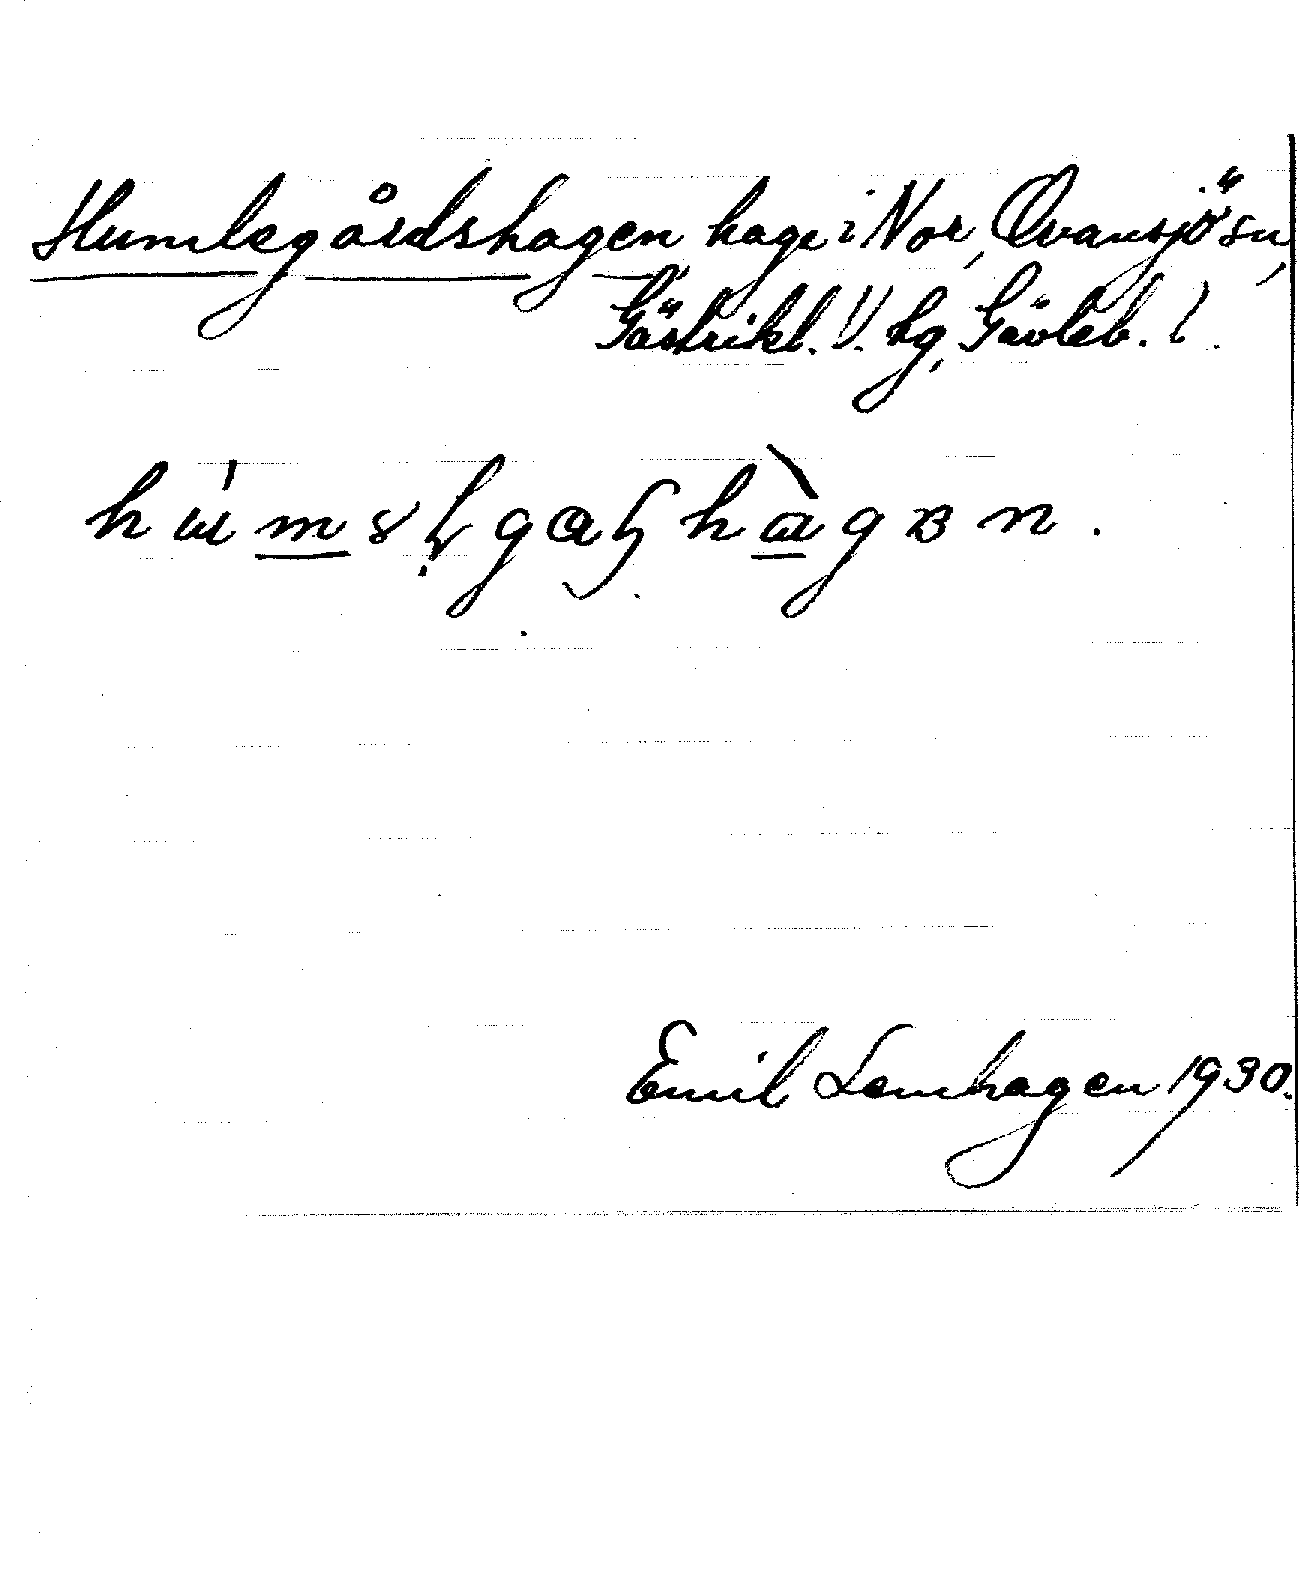 Humlegårdshagen, hage i Nor, Ovansjö sn,
Gästrikl. V. hg, Gävleb. l.
Emil Lenhagen 1930.